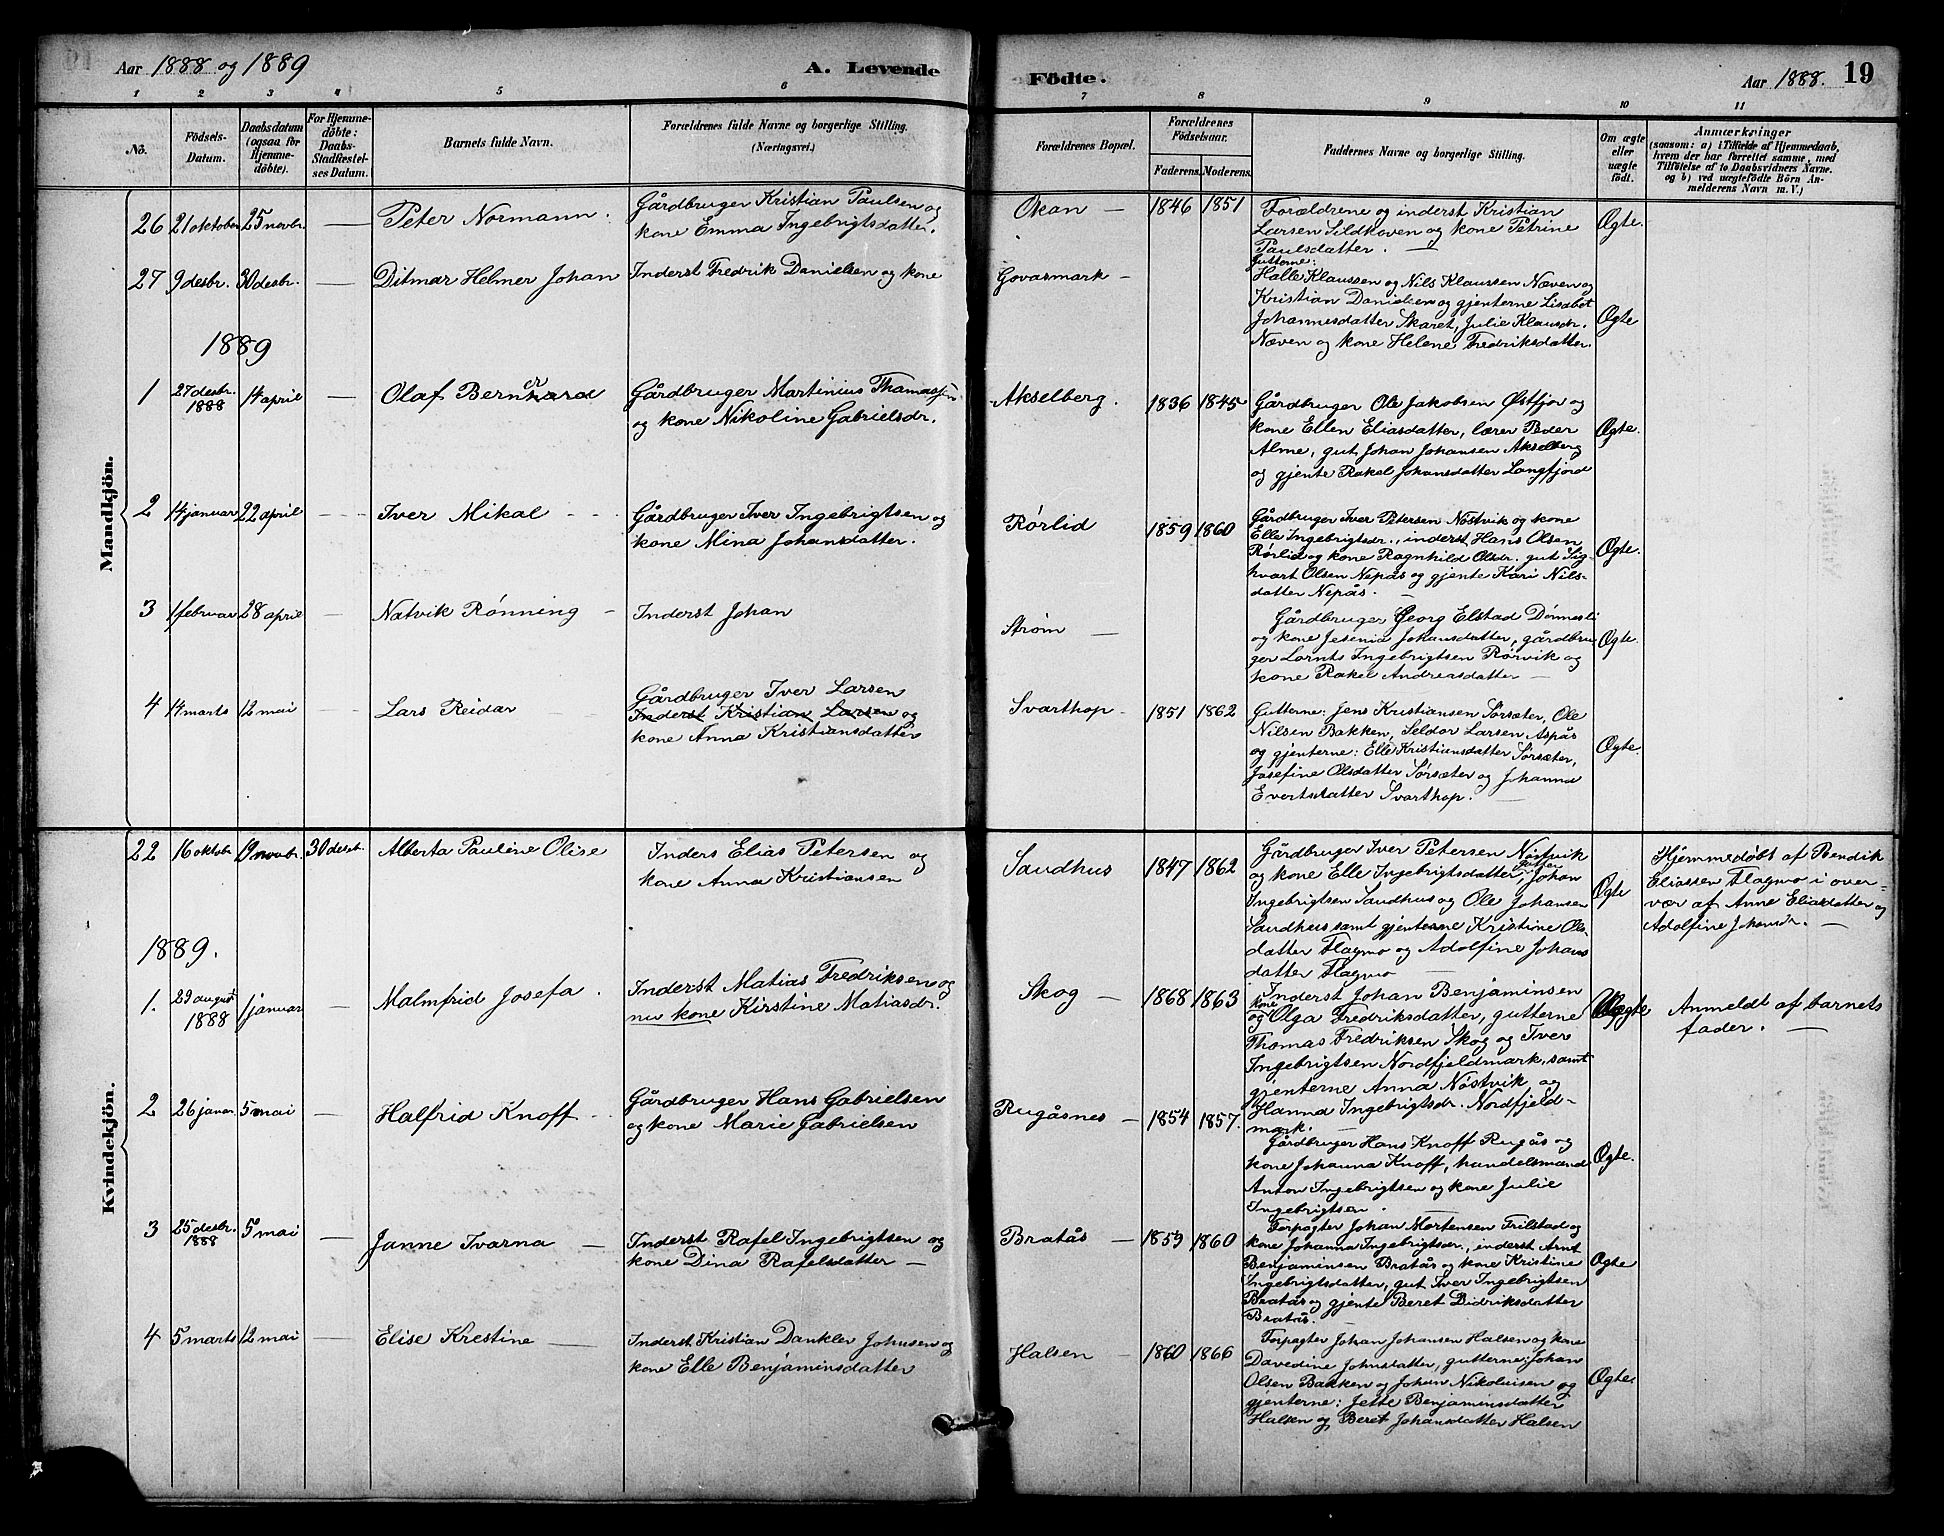 Aar 1888 og 1889
A. Levende
Födte.
Aar 1888.
19
1 2 3 4 5 6 7 8 9 10 11
No.
Födsels-
Datum.
Daabsdatum
(ogsaa for
Hjemme-
döbte).
For Hjemme-
döbte:
Daabs-
Stadfæstel-
ses Datum.
Barnets fulde Navn.
Forældrenes fulde Navne og borgerlige Stilling.
(Næringsvei.)
Forældrenes Bopæl.
Forældrenes
Födselsaar.
Faderens. Moderens.
Faddernes Navne og borgerlige Stilling.
Om ægte
eller
uægte
födt.
Anmærkninger
(saasom: a) i Tilfælde af Hjemmedaab,
hvem der har forrettet samme, med
Tilföielse af to Daabsvidners Navne.
og b) ved uægtefödte Börn An-
melderens Navn m. V.)
Mandkjön.
26 21 oktober 25 novbr. — Peter Normann.
Gårdbruger Kristian Paulsen og
kone Emma Ingebrigtsdatter.
Okan — 1846 1851
Forældrene og inderst Kristian
Larsen Sildhoven og kone Petrine
Paulsdatter. —
Ægte.
27 9 desbr. 30 desbr. — Ditmar Helmer Johan
Inderst Fredrik Danielsen og kone
Govasmark —
Gutterne:
Halle Klaussen og Nils Klaussen Næven og
Kristian Danielsen og gjenterne Lisabet
Johannesdatter Skaret, Julie Klausdr.
Næven og kone Helene Fredriksdatter.
Ægte
1889
1 27 desbr. 1888 14 april — Olaf Bernhard
er
Gårdbruger Martinius Thomassen
og kone Nikoline Gabrielsdr.
Akselberg. 1836 1845
Gårdbruger Ole Jakobsen Østfjor og
kone Ellen Eliasdatter, lærer Peder
Alme, gut Johan Johansen Akselberg
og gjente Rakel Johansdatter Langfjord
Ægte.
2 14 januar 22 april — Iver Mikal
Gårdbruger Iver Ingebrigtsen og
kone Mina Johansdatter.
Rørlid 1859 1860
Gårdbruger Iver Petersen Nøstvik og kone
Elle Ingebrigtsdr., inderst Hans Olsen
Rørlid og kone Ragnhild Olsdr. gut Sig-
hvart Olsen Nepås og gjente Kari Nils-
datter Nepås. —
Ægte.
3 1 februar 28 april — Natvik Rønning —
Inderst Johan
Strøm —
Gårdbruger Georg Elstad Dønnesli
og kone Jesenia Johansdatter, gårdbru
ger Lornts Ingebrigtsen Rørvik og
kone Rakel Andreasdatter —
Ægte.
4 14 marts 12 mai — Lars Reidar
Gårdbruger Iver Larsen
Inderst Kristian Larsen og
kone Anna Kristiansdatter
Svarthop — 1851 1862
Gutterne: Jens Kristiansen Sørsæter, Ole
Nilsen Bakken, Seldor Larsen Aspås
og gjenterne: Elle Kristiansdatter Sørsæter,
Josefine Olsdatter Sørsæter og Johanna
Evertsdatter Svarthop. —
Ægte.
Kvindekjön.
22 16 oktobr. 19 novbr. 30 desbr. Alberta Pauline Olise
Inders Elias Petersen og
kone Anna Kristiansen
Saudhus 1847 1862
Gårdbruger Iver Petersen Nøstvik
og kone Elle Ingebrigtsdatter, gutterne Johan
Ingebrigtsen Saudhus og Ole Johansen
Saudhus samt gjenterne Kristine Ols-
datter Flagmo og Adolfine Johans
datter Flagmo —
Ægte
Hjemmedøbt af Bendik
Eliassen Flagmo i over-
vær af Anne Eliasdatter og
Adolfine Johansdr. —
1889.
1. 23 august 1888 1 januar — Malmfrid Josefa.
Inderst Matias Fredriksen og
nu kone Kirstine Matiasdr.
Skog — 1868 1863
Inderst Johan Benjaminsen
og kone Olga Fredriksdatter, gutterne
Thomas Fredriksen Skog og Iver
Ingebrigtsen Nordfjeldmark, samt
gjenterne Anna Nøstvik og
Hanna Ingebrigtsdr. Nordfjeld-
mark. —
Uægte
Anmeldt af barnets
fader. —
2 26 januar. 5 mai — Halfrid Knoff
Gårdbruger Hans Gabrielsen
og kone Marie Gabrielsen
Rugåsnes — 1854 1857.
Gårdbruger Hans Knoff Rugås og
kone Johanna Knoff, handelsmand
Anton Ingebrigtsen og kone Julie
Ingebrigtsen. —
Ægte.
3 25 desbr. 1888 5 mai — Janne Ivarna —
Inderst Rafel Ingebrigtsen og
kone Dina Rafelsdatter —
Bratås — 1859 1860
Forpagter Johan Mortensen Frilstad og
kone Johanna Ingebrigtsdr., inderst Arnt
Benjaminsen Bratås og kone Kristine
Ingebrigtsdatter, gut Iver Ingebrigtsen
Bratås og gjente Beret Didriksdatter
Bratås. —
Ægte
4 5 marts 12 mai — Elise Krestine —
Inderst Kristian Dankler Johnsen og
kone Elle Benjaminsdatter
Halsen — 1860 1866
Forpagter Johan Johansen Halsen og kone
Davedine Johnsdatter, gutterne: Johan
Olsen Bakken og Johan Nikolaisen og
gjenterne: Jette Benjaminsdatter
Halsen og Beret Johansdatter Halsen
Ægte.